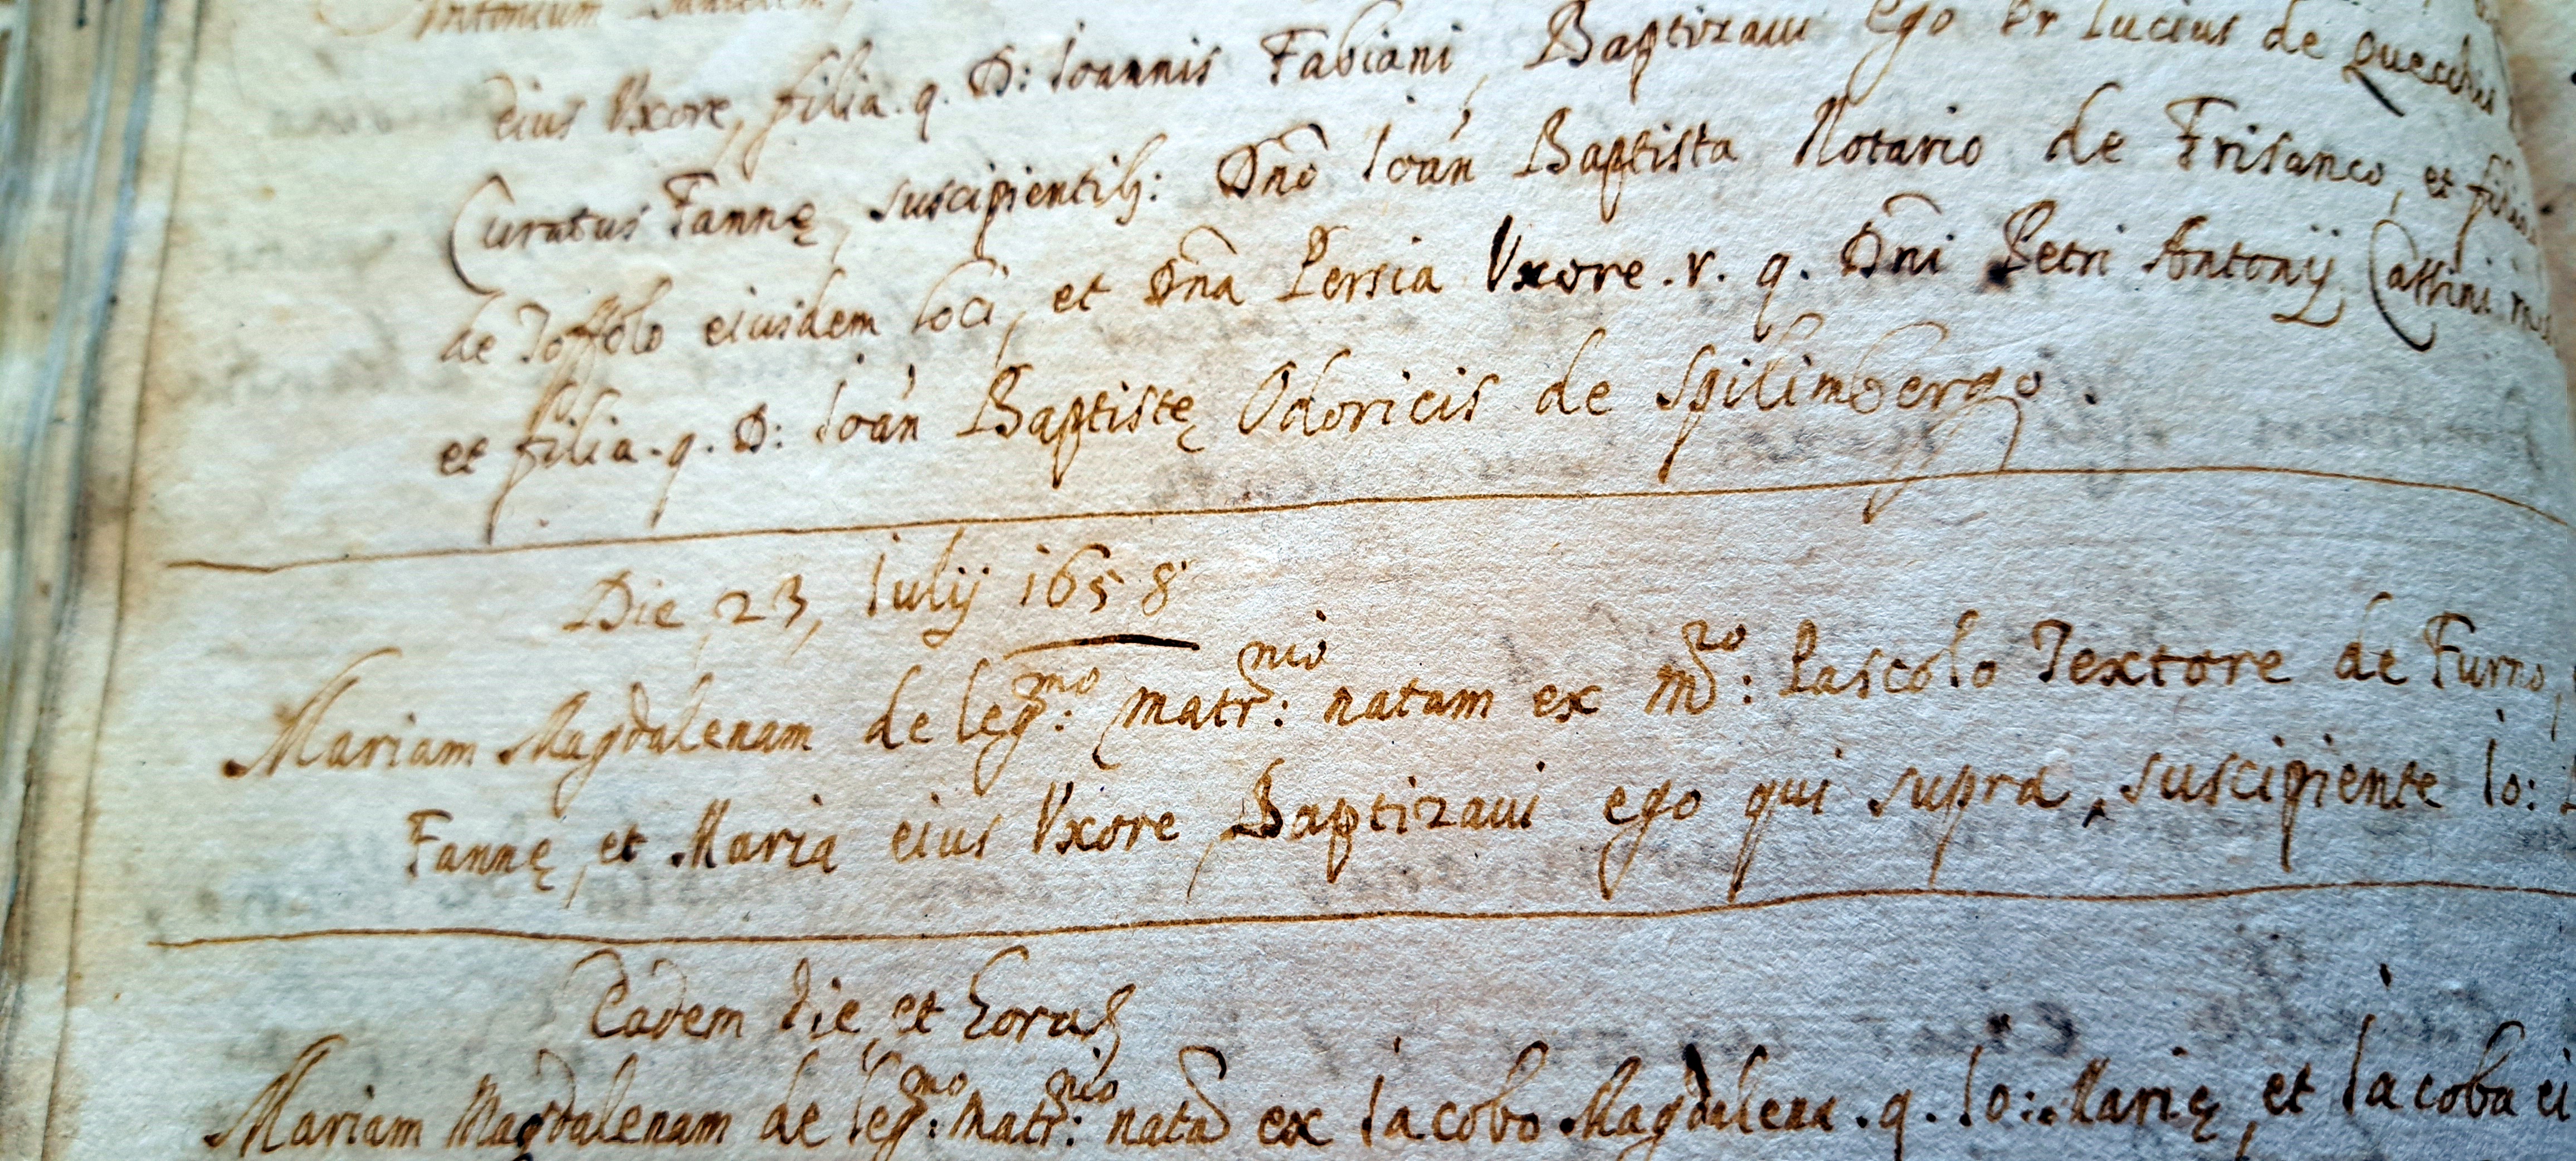 Antonium
eius Vxore, filia .q. D: Ioannis Fabiani, Baptizaui Ego Pr Lucius de Quecchis
Curatus Fannę, suscipientib9: Dn̄o Ioán Baptista Notario de Frisanco, et filio
de Toffolo eiusdem loci, et Dn̄a Persia Vxore .r. q. Dn̄i Petri Antonij Cattini
et filia .q. D: Ioán Baptistę Odoricis de Spilimbergo.
Die, 23, Iulij 1658
Mariam Magdalenam de leg:mo matr:nio natam ex M:ro Pascolo Textore de Furno,
Fannę, et Maria eius Vxore, Baptizaui ego qui supra, suscipiente Io:
Eadem die, et hora
Mariam Magdalenam de leg:mo matr:nio natā ex Iacobo Magdalena .q. Io: Marię, et Iacoba ei